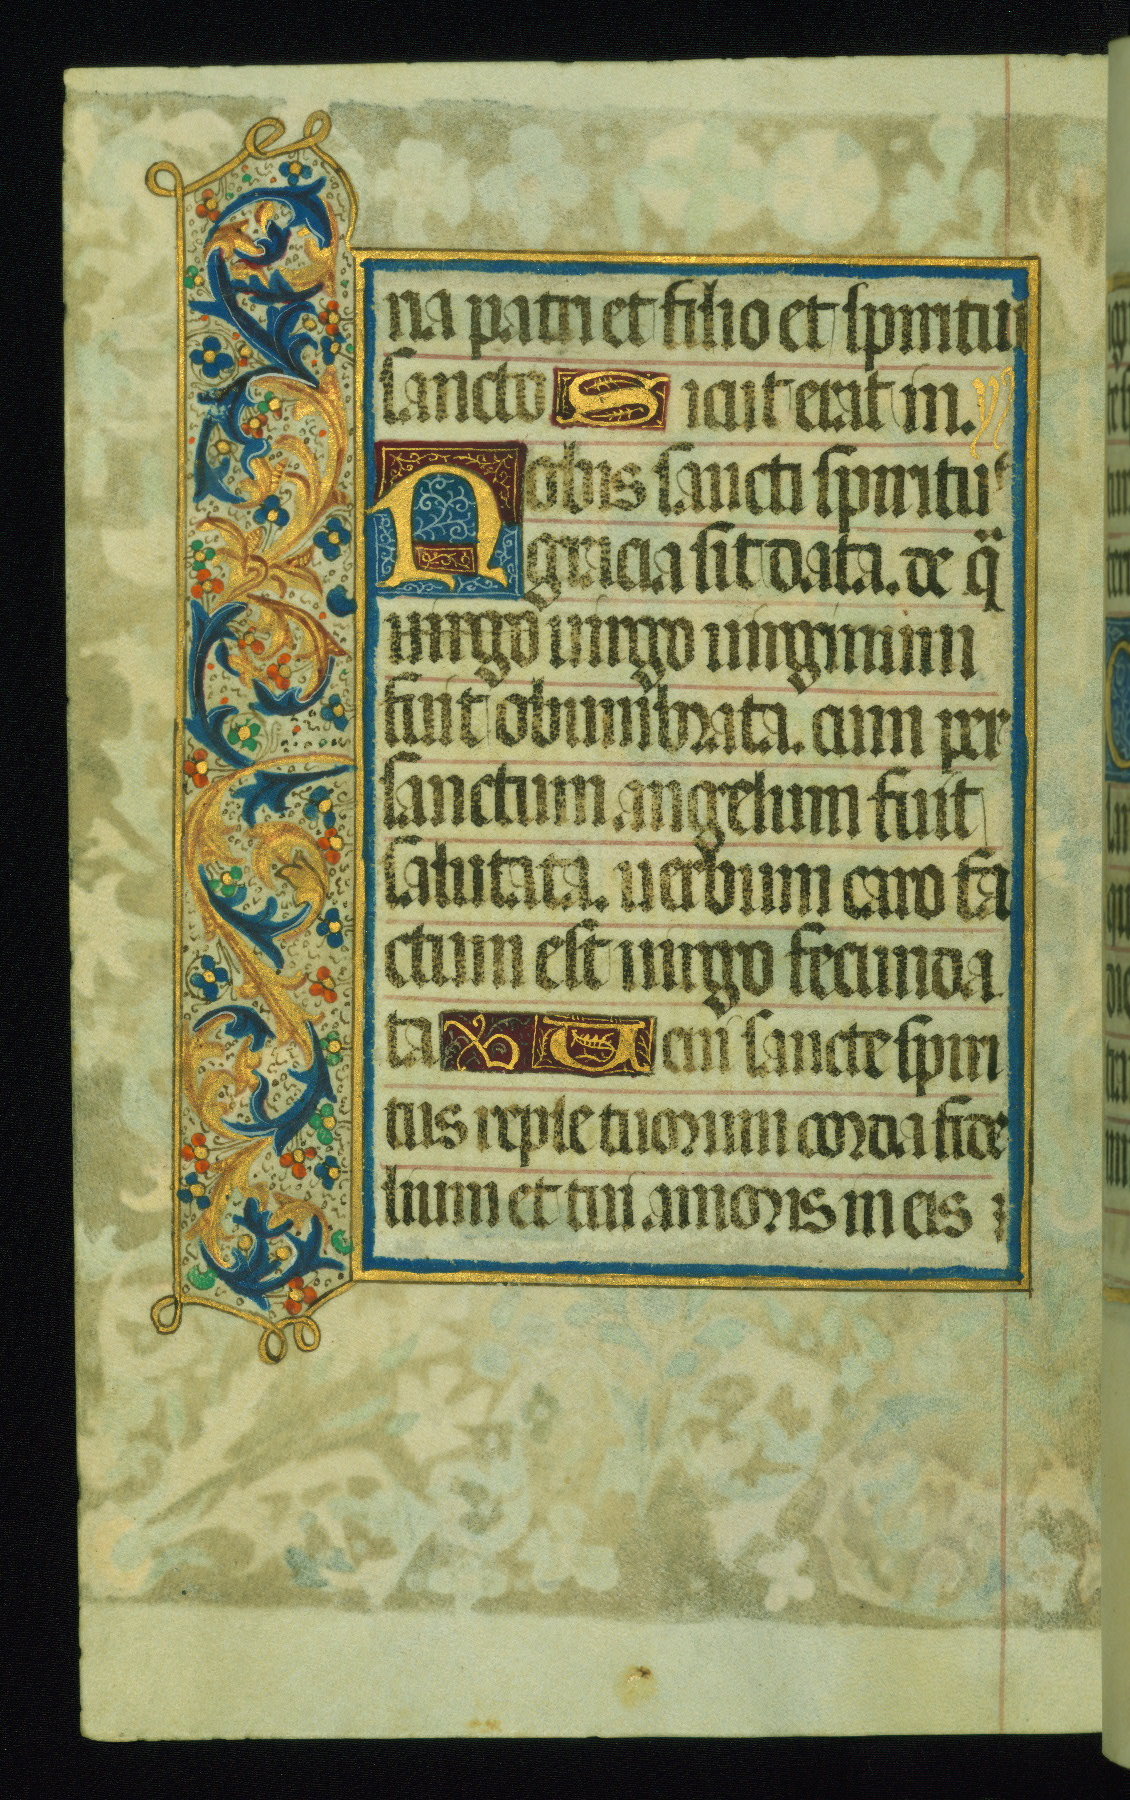 ria patri et filio et spiritui
sancto Sicut erat in. ym̄
Nobis sancti spiritus
gracia sit data. de q̄
uirgo uirgo uirginum
fuit obumbrata. cum per
sanctum angelum fuit
salutata. uerbum caro fa
ctum est uirgo fecunda
ta ꝟ Ueni sancte spiri
tus reple tuorum corda fide
lium et tui amoris in eis i